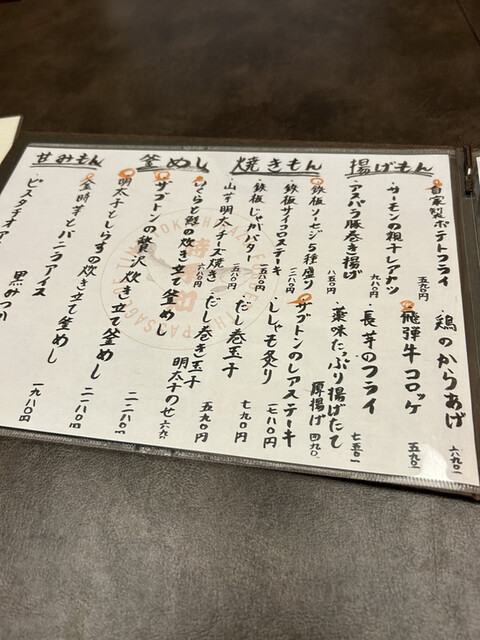 揚げもん
・自家製ポテトフライ 五九〇円
・サーモンの粗干レアカツ 九八〇円
・アスパラ豚巻き揚げ 八五〇円
・鶏のからあげ 六九〇
・飛騨牛コロッケ 五九〇
・長芋のフライ 七五〇
・薬味たっぷり揚げたて厚揚げ 四九〇
焼きもん
・鉄板ソーセージ5種盛り
・鉄板サイコロステーキ
・鉄板じゃがバター
・山芋明太チーズ焼き
・ザブトンのレアステーキ 一七八〇円
・ししゃも炙り 七九〇円
・だし巻玉子 五九〇円
・だし巻き玉子 明太子のせ
釜めし
・いくらと鮭の炊き立て釜めし
・ザブトンの贅沢炊き立て釜めし
・明太子としらすの炊き立て釜めし
甘みもん
・金時芋とバニラアイス
・ピスタチオア
黒みつ